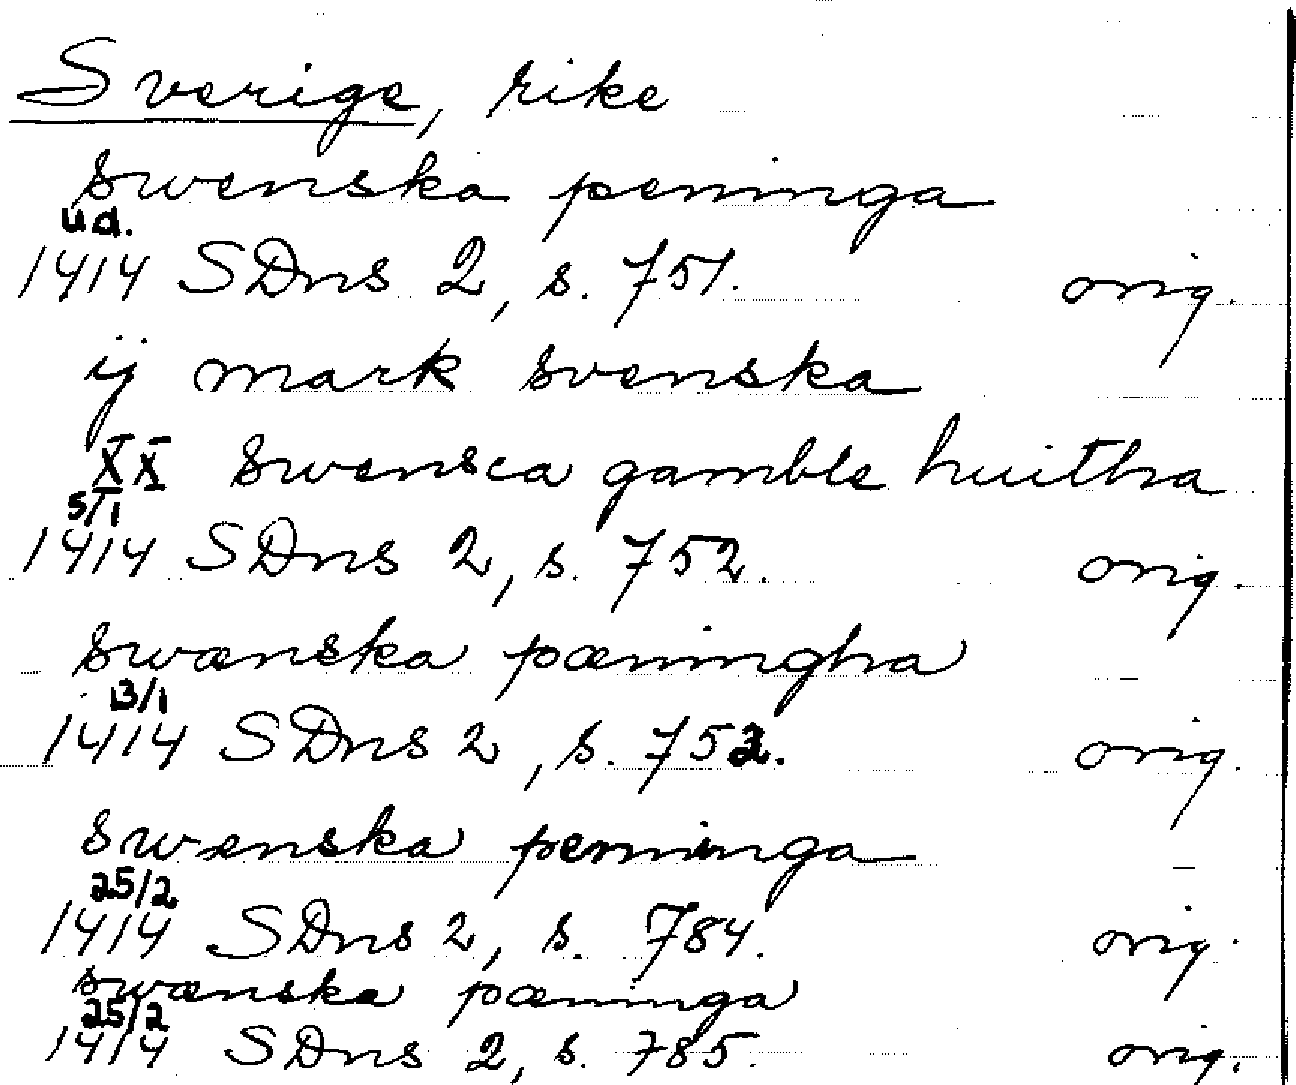 Sverige, rike
swenska peninga
u d.
1414 SDns 2, s. 751. orig.
ij mark svenska
XX swensca gamble huitha
5/1
1414 SDns 2, s. 752. orig.
swænska pæningha
13/1
1414 SDns 2, s. 752. orig.
swenska penninga
25/2
1414 SDns 2, s. 784. orig.
swænska pæninga
25/2
1414 SDns 2, s. 785. orig.